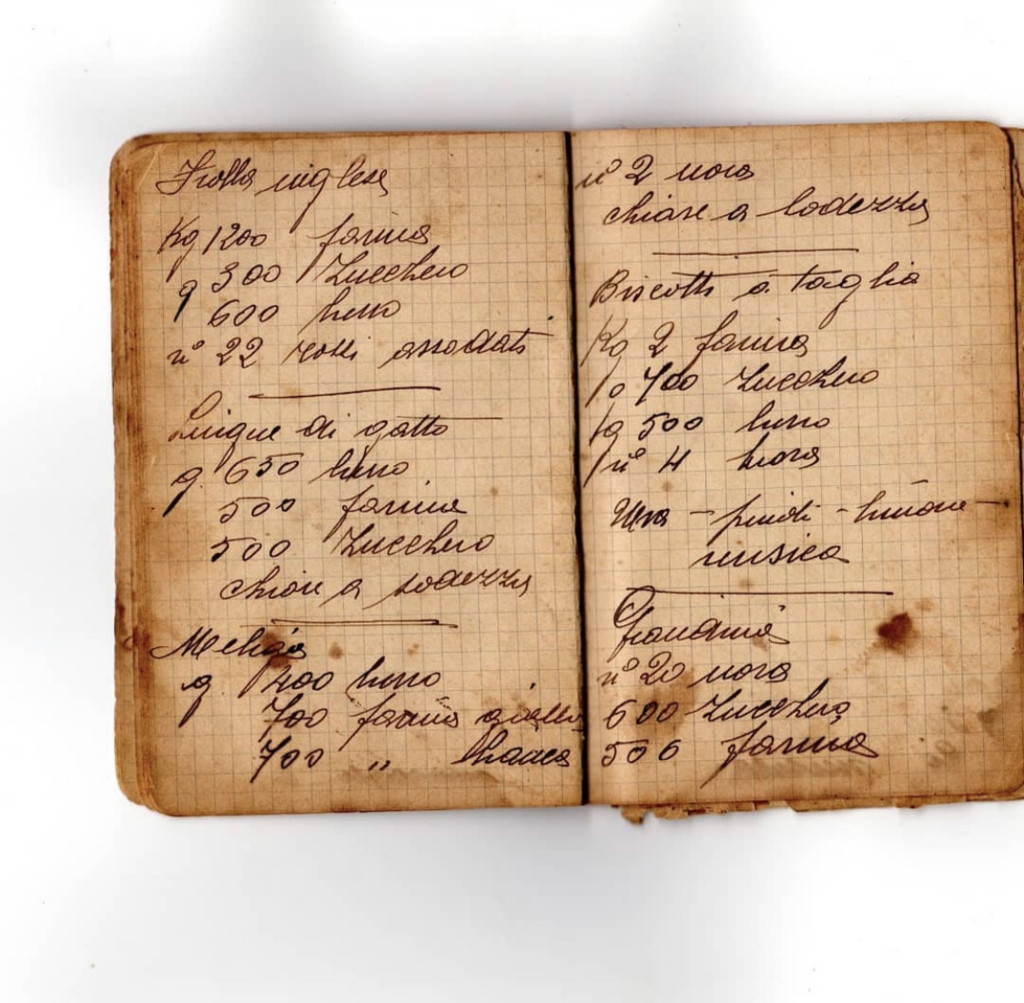 Frolla inglese
Kg 1200 farina
g 300 Zucchero
600 burro
n° 22 rossi assodati
Lingue di gatto
g. 650 burro
500 farina
500 Zucchero
chiare a sodezza
Meliga
g. 400 burro
700 farina gialla
700 " bianca
n° 2 uova
chiare a sodezza
Biscotti a taglia
Kg 2 farina
700 Zucchero
g 500 burro
n° 4 uova
Uva - - limone -
Grandina
n° 20 uova
600 Zucchero
500 farina